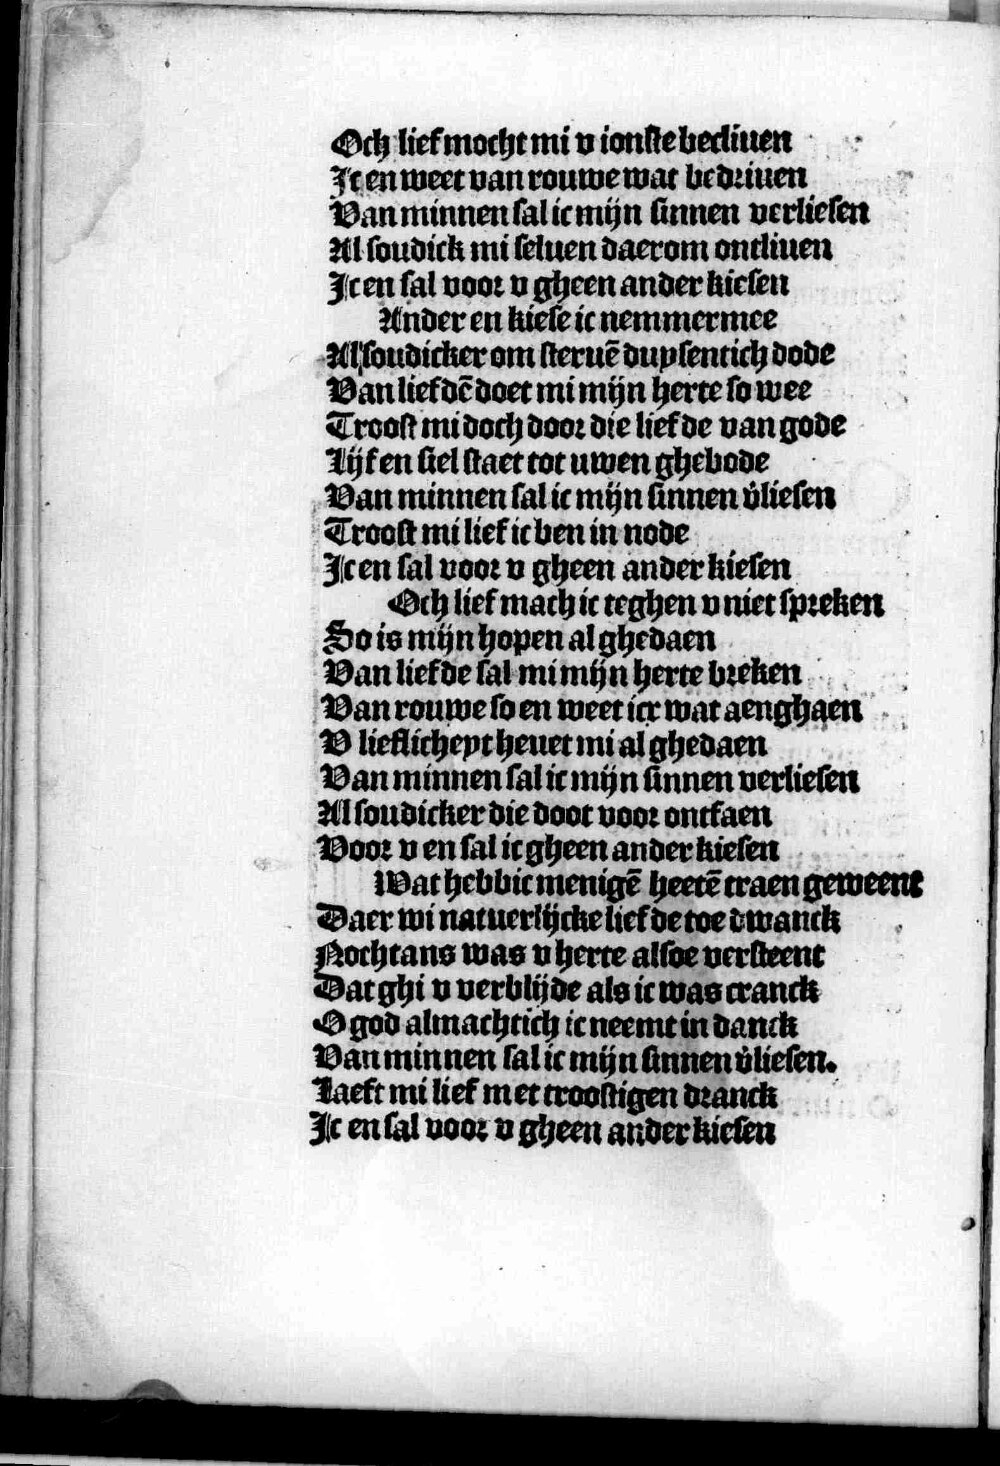 Och lief mocht mi v ionste becliuen
Ic en weet van rouwe wat bedriuen
Van minnen sal ic mijn sinnen verliesen
Al soudick mi seluen daerom ontliuen
Ic en sal voor v gheen ander kiesen
Ander en kiese ic nemmermee
Al soudicker om steruē duysentich dode
Van liefdē doet mi mijn herte so wee
Troost mi doch door die liefde van gode
Lijf en siel staet tot uwen ghebode
Van minnen sal ic mijn sinnen v̓liesen
Troost mi lief ic ben in node
Ic en sal voor v gheen ander kiesen
Och lief mach ic teghen v niet spreken
So is mijn hopen al ghedaen
Van liefde sal mi mijn herte breken
Van rouwe so en weet icx wat aenghaen
V lieflicheyt heuet mi al ghedaen
Van minnen sal ic mijn sinnen verliesen
Al soudicker die doot voor ontfaen
Voor v en sal ic gheen ander kiesen
Wat hebbic menigē heetē traen geweent
Daer wi natuerlijcke liefde toe dwanck
Nochtans was v herte alsoe versteent
Dat ghi v verblijde als ic was cranck
O god almachtich ic neemt in danck
Van minnen sal ic mijn sinnen v̓liesen.
Laeft mi lief met troostigen dranck
Ic en sal voor v gheen ander kiesen